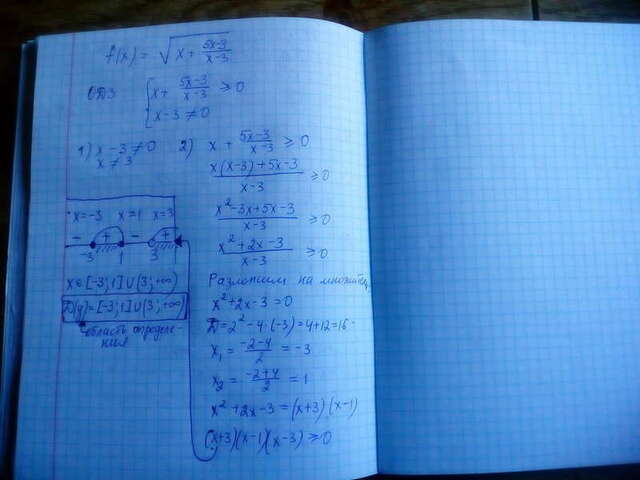 f(x) = √(x + (5x-3)/(x-3))
ОДЗ { x + (5x-3)/(x-3) ≥ 0
x - 3 ≠ 0
1) x - 3 ≠ 0
x ≠ 3
2) x + (5x-3)/(x-3) ≥ 0
(x(x-3)+5x-3)/(x-3) ≥ 0
(x²-3x+5x-3)/(x-3) ≥ 0
(x²+2x-3)/(x-3) ≥ 0
Разложим на множител.
x²+2x-3=0
D=2²-4·(-3)=4+12=16
x₁ = (-2-4)/2 = -3
x₂ = (-2+4)/2 = 1
x²+2x-3=(x+3)(x-1)
(x+3)(x-1)(x-3) ≥ 0
x=-3 x=1 x=3
- + - +
-3 1 3
x∈[-3;1]∪(3;+∞)
D(y)=[-3;1]∪(3;+∞)
область определе-
ния